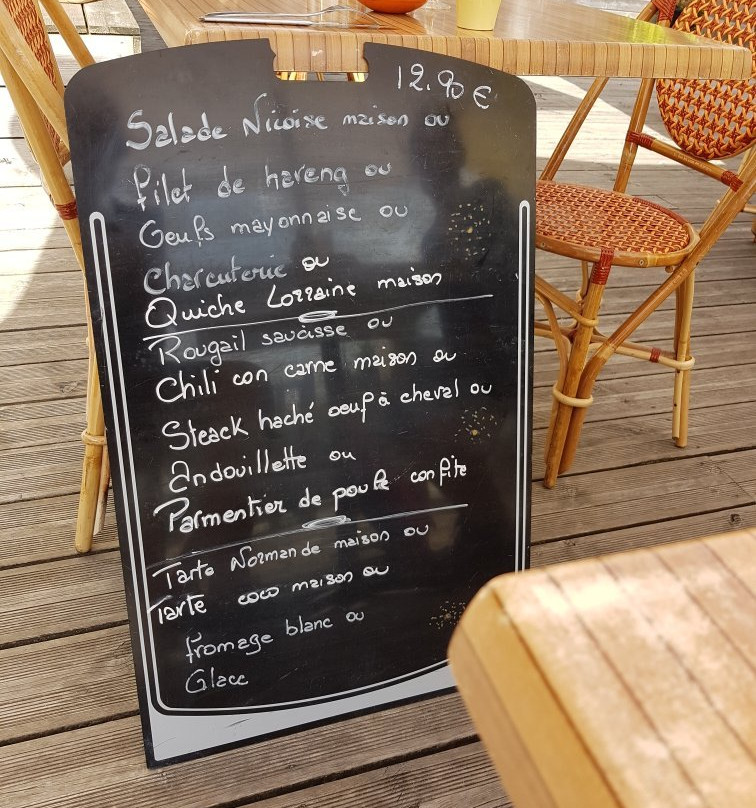 12.90 €
Salade Nicoise maison ou
filet de hareng ou
Oeufs mayonnaise ou
Charcuterie ou
Quiche Lorraine maison
Rougail saucisse ou
Chili con carne maison ou
Steack haché oeuf à cheval ou
Andouillette ou
Parmentier de poule confite
Tarte Normande maison ou
Tarte coco maison ou
fromage blanc ou
Glace